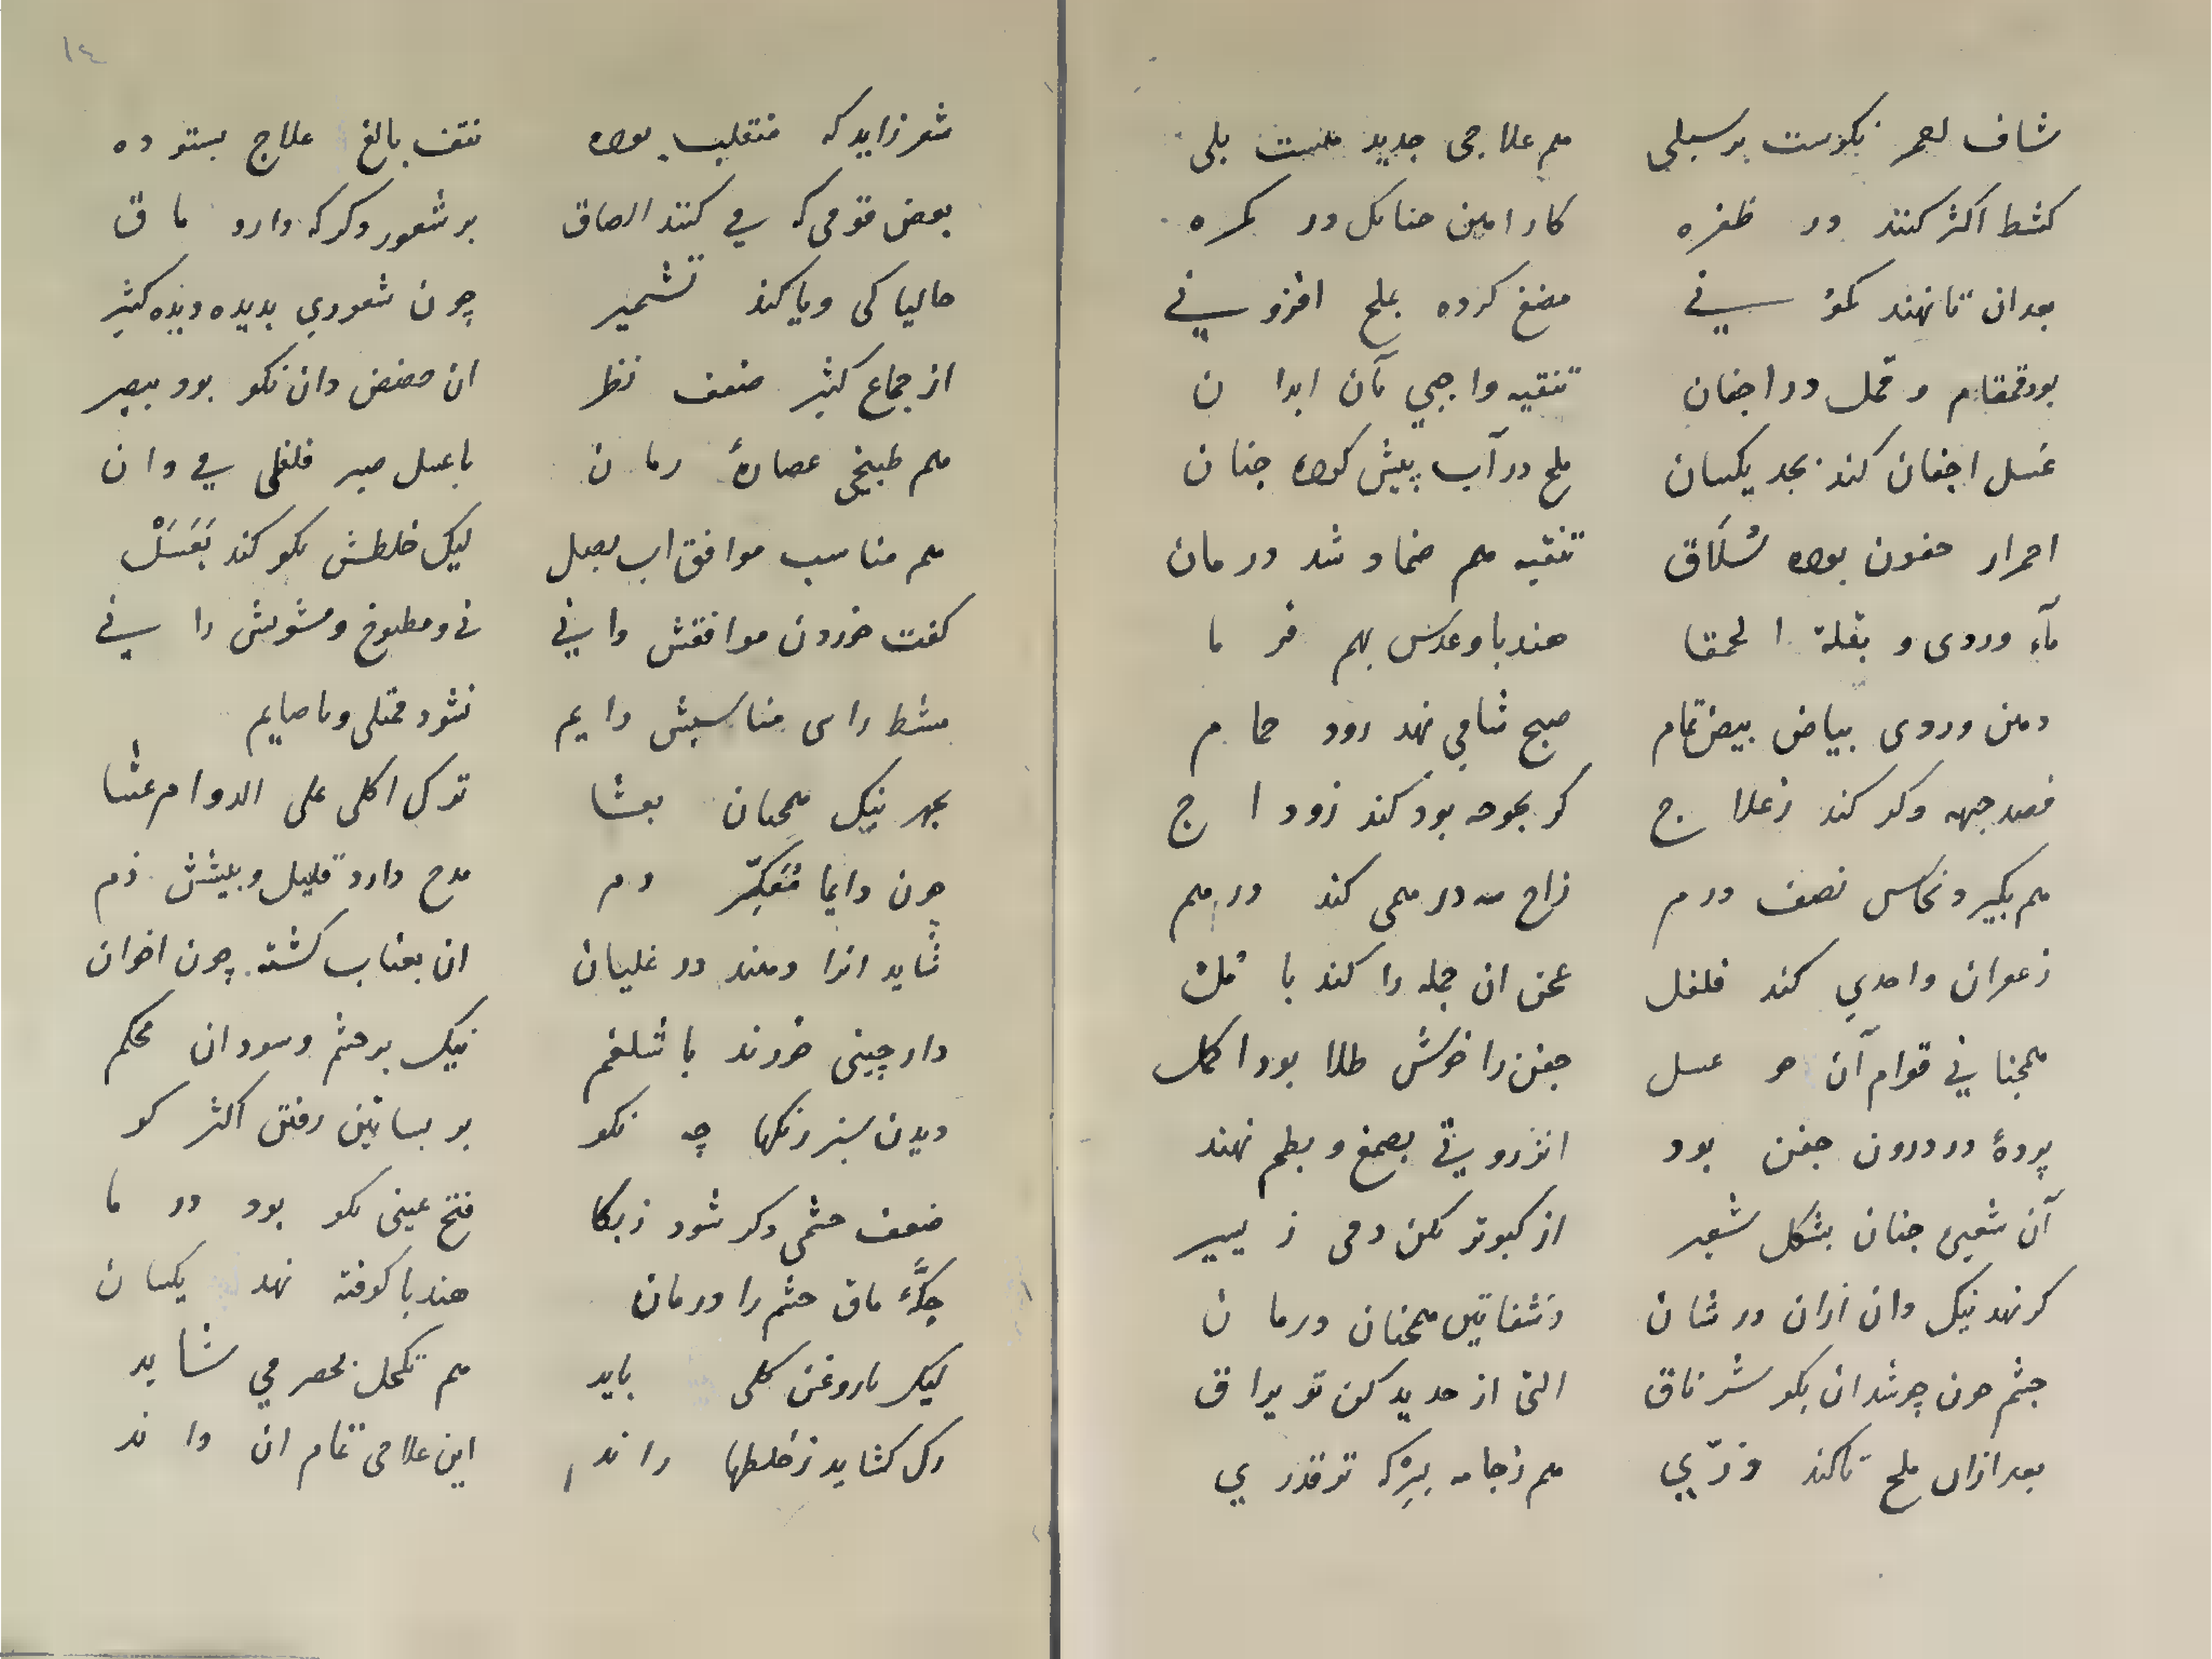 شاف احمر نکوست بر سبلی هم علاجی جدید هست بلی
کشط اکثر کنند در ظفره کار امین چنانک در کمره
بعدان تا نهند کمو نی مضغ کرده بملح افزو نی
بود قمقام و قمل در اجفان تنقیه واجبی بآن ابدا ن
غسل اجفان کند بجد یکسان ملح در آب پیش کرده چنان
احمرار جفون بوده سُلاق تنقیه هم ضماد شد درمان
مآء وردی و بقلة الحمقا هندبا و عدس بهم فرما
دهن وردی بیاض بیض تمام صبح شافی نهد رود حمام
فصد جبهه وکر کند زعلا ج کر بجوحه بود کند زود ا ج
هم بکیرد نحاس نصف درم زاج سه درهمی کند درهم
زعفران واحدی کند فلفل عجن ان جمله را کند با مل
همچنانی قوام آن چو عسل جفن را خوش طلا بود اکمل
پردهٔ در درون جفن بود انزروتی بصمغ و بطم نهند
آن شعیری چنان بشکل شعیر از کبوتر بکن دمی ز یسیر
کر نهد نیک دان ازان در شان وشفاتین همچنان درمان
چشم چون چرشدان نکو شرناق التی از حدید کن تو براق
بعد ازان ملح تا کند وزّی هم زجامه ببر که تر قدری
١٤
شعر زاید که منقلب بوده نتف بالغ علاج بستوده
بعض قومی که می کنند الصاق بر شعور دکر که دارد ماق
حالیا کی ویا کند تشمیر چون شعوری بدیده دیده کثیر
از جماع کثیر ضعف نظر ان حضض دان نکو بود ببصر
هم طبیخی عصارهٔ رمان با عسل صبر فلفلی می دان
هم مناسب موافق اب بصل لیک خلطش نکو کند بَعَسَلْ
کفت خوردن موافقش دانی نی و مطبوخ و مشویش را نی
مشط راس مناسبش دایم نشود ممتلی و ناصایم
بهر نیک همچنان بعشا ترک اکلی علی الدوام عشا
چون دایما مُعَکِّر دم مدح دارد قلیل و بیشش ذم
شاید انرا دهند در غلیان ان بعناب کشته چون اخوان
دارچینی خورند با شلغم نیک بر چشم و سود ان محکم
دیدن سبز رنکها چه نکو بر بساتین رفتن اکثر کو
ضعف چشمی دکر شود زبکا فتح عینی نکو بود در ما
حِکّهٔ ماق چشم را درمان هندبا کوفته نهد یکسان
لیک باروغن کلی باید هم تکحل بحصرمی شاید
رک کشاید زخلطها راند این علاجی تمام ان داند